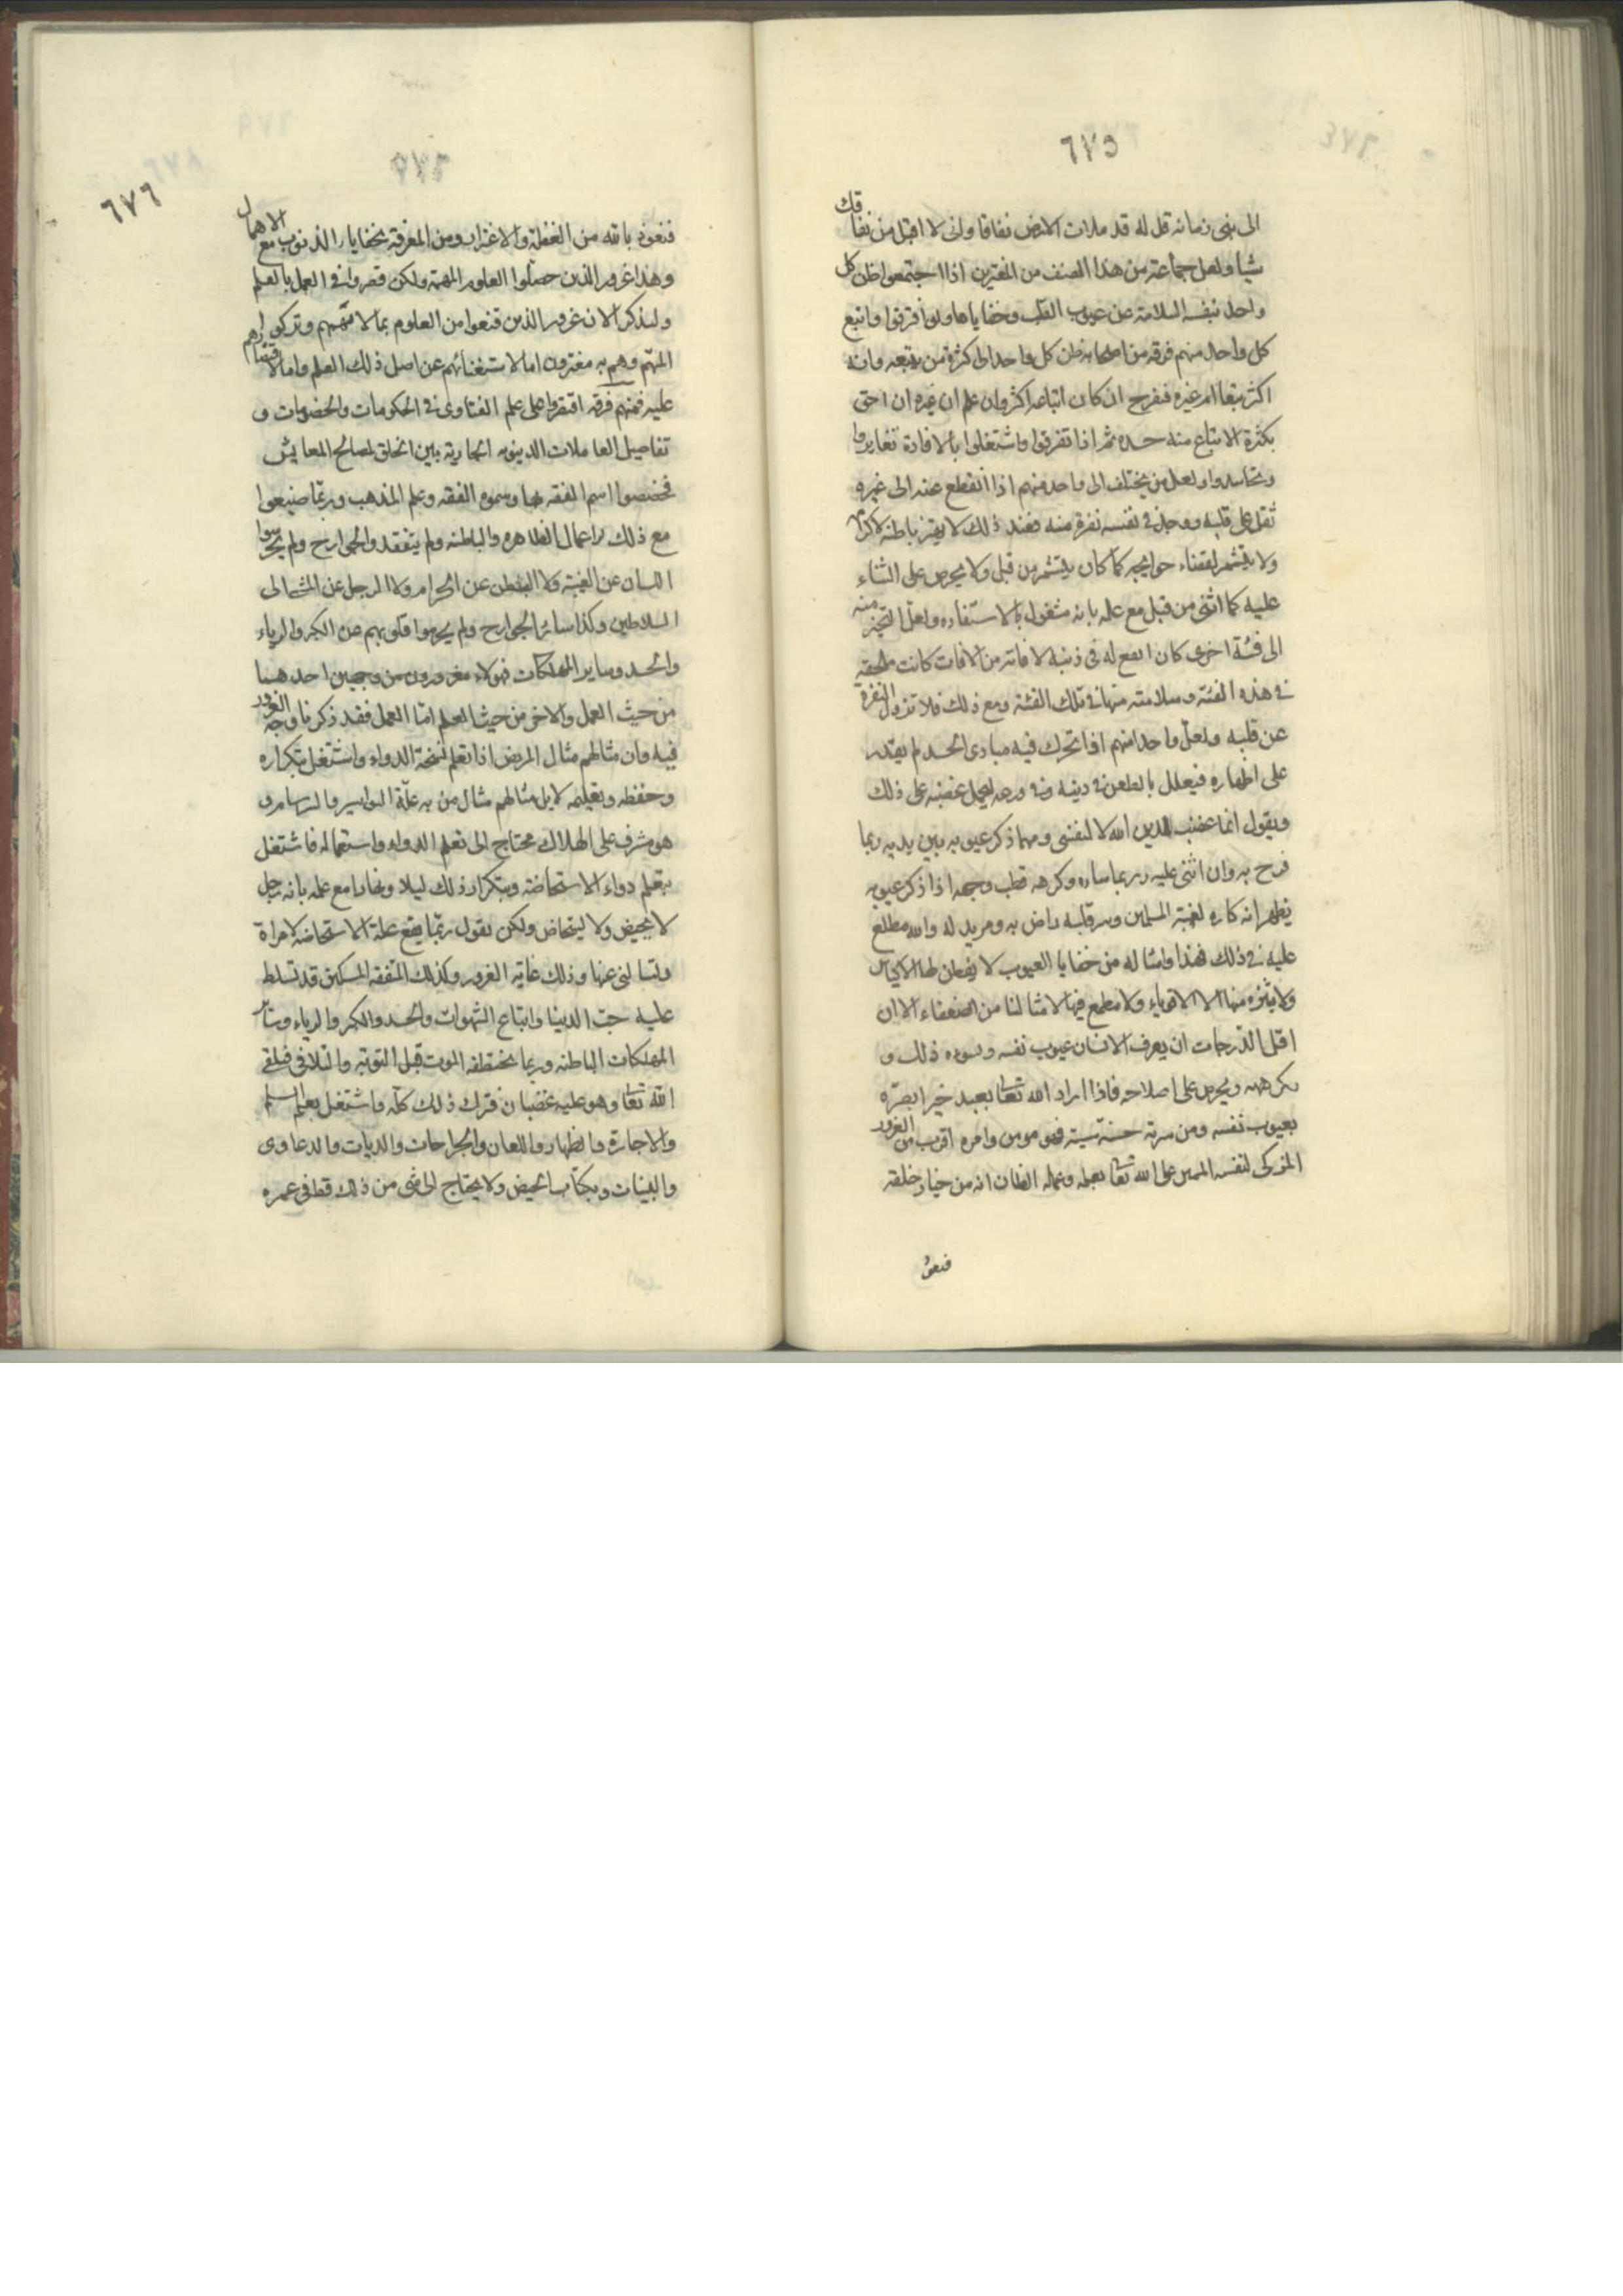 ٦٧٥
الى نبى زمانه قل له قد ملات الارض نفاقا وانى لا اقبل من نفاقك
شيا ولعل جماعة من هذا الصنف من المغترين اذا اجتمعوا ظن كل
واحد بنفسه السلامة عن عيوب القلب وخفاياها ولو افترقوا واتبع
كل واحد منهم فرقة من اصحابه ظن كل واحد الى كثرة من يتبعه وانه
اكثر تبعا ام غيره فيفرح ان كان اتباعه اكثر وان علم ان غيره احق
بكثرة الاتباع منه حسده ثم اذا تفرقوا واشتغلوا بالافادة تغايروا
وتحاسدوا ولعل من يختلف الى واحد منهم اذا انقطع عنه الى غيره
ثقل على قلبه ووجد فى نفسه نفرة منه فعند ذلك لا يهتز باطنه لاكرامه
ولا يتشمر لقضاء حوايجه كما كان يتشمر من قبل ولا يحرص على الثناء
عليه كما اثنى من قبل مع علمه بانه مشغول بالاستفاده ولعل التحيز منه
الى فئة اخرى كان انفع له فى دينه لافة من الافات كانت تلحقه
فى هذه الفئة وسلامته منها فى تلك الفئة ومع ذلك فلا تزول النفرة
عن قلبه ولعل واحدا منهم اذا تحرك فيه مبادى الحسد لم يقدر
على اظهاره فيعلل بالطعن فى دينه وفى ورعه ليحمل غضبه على ذلك
ويقول انما غضبت لدين الله لا لنفسى ومهما ذكر عيوبه بين يديه ربما
فرح به وان اثنى عليه ربما ساءه وكرهه قطب وجهه اذا ذكر عيوبه
يظهر انه كاره لغيبة المسلمين وسر قلبه راض به ومريد له والله مطلع
عليه فى ذلك فهذا وامثاله من خفايا العيوب لا يفطن لها الا الاكياس
ولا يتنزه منها الا الاقوياء ولا مطمع فيها لامثالنا من الضعفاء الا ان
اقل الدرجات ان يعرف الانسان عيوب نفسه ويسوءه ذلك و
يكرهه ويحرص على اصلاحه فاذا اراد الله تعا بعبد خيرا بصره
بعيوب نفسه ومن سرته حسنته وساءته سيئته فهو مومن وامره اقرب من الغرور
المزكى لنفسه الممتن على الله تعا بعمله وعلمه الظان انه من خيار خلقه
فنعوذ
٦٧٦
فنعوذ بالله من الغفلة والاغترار ومن المعرفة بخفايا الذنوب مع الاهمال
وهذا غرور الذين حصلوا العلوم المهمة ولكن قصروا فى العمل بالعلم
ولنذكر الان غرور الذين قنعوا من العلوم بما لا يهمهم وتركوا
المهم وهم به مغترون اما لاستغنائهم عن اصل ذلك العلم واما لاقتصارهم
عليه فمنهم فرقة اقتصروا على علم الفتاوى فى الحكومات والخصومات و
تفاصيل المعاملات الدنيويه الجارية بين الخلق لمصالح المعايش
فخصصوا اسم الفقه بها وسموه الفقه وعلم المذهب وربما ضيعوا
مع ذلك الاعمال الظاهرة والباطنه ولم يتفقدوا الجوارح ولم يحرسوا
اللسان عن الغيبة ولا البطن عن الحرام ولا الرجل عن المشى الى
السلاطين وكذا سائر الجوارح ولم يحرسوا قلوبهم عن الكبر والرياء
والحسد وساير المهلكات فهولاء مغرورون من وجهين احدهما
من حيث العمل والاخر من حيث العلم امّا العمل فقد ذكرنا وجه الغرور
فيه وان مثالهم مثال المريض اذا تعلم نسخة الدواء واشتغل بتكراره
وحفظه وتعليمه لا بل مثالهم مثال من به علّة البواسير والبرسام و
هو مشرف على الهلاك محتاج الى تعلم الدواء واستعماله فاشتغل
بتعلم دواء الاستحاضة وبتكرار ذلك ليلا ونهارا مع علمه بانه رجل
لا يحيض ولا يستحاض ولكن يقول ربّما يقع علة الاستحاضه لامراة
وتسالنى عنها وذلك غاية الغرور وكذلك المتفقه المسكين قد تسلط
عليه حب الدنيا واتباع الشهوات والحسد والكبر والرياء وسائر
المهلكات الباطنه وربما يختطفه الموت قبل التوبة والتلافى فيلقى
الله تعا وهو عليه غضبان فترك ذلك كلّه واشتغل بعلم السلم
والاجارة والظهار واللعان والجراحات والديات والدعاوى
والبينات وبكتاب الحيض ولا يحتاج الى شى من ذلك قط فى عمره